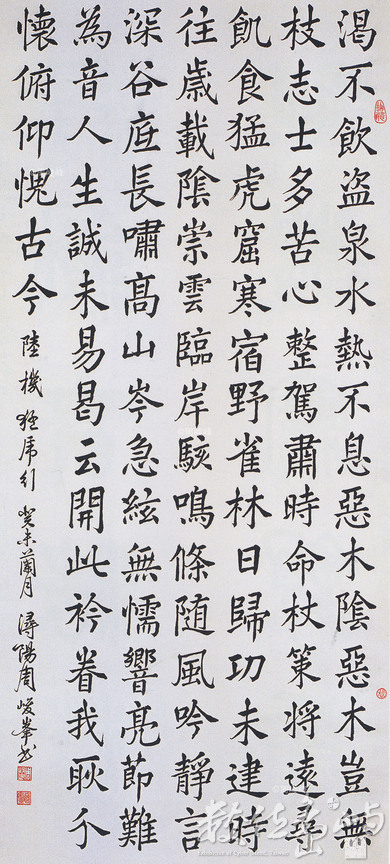 渴不飲盜泉水熱不息惡木陰惡木豈無
枝志士多苦心整駕肅時命杖策將遠尋
飢食猛虎窟寒宿野雀林日歸功未建時
往歲載陰崇雲臨岸駭鳴條随風吟靜言
深谷底長嘯髙山岑急絃無懦響亮節難
為音人生誠未易曷云開此衿眷我耿介
懷俯仰愧古今 陸機猛虎行 癸未蘭月 潯陽周